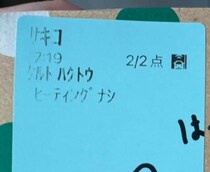 サキコ
17:19 2/2点
ソルト ハクトウ
ヒーティングナシ
は